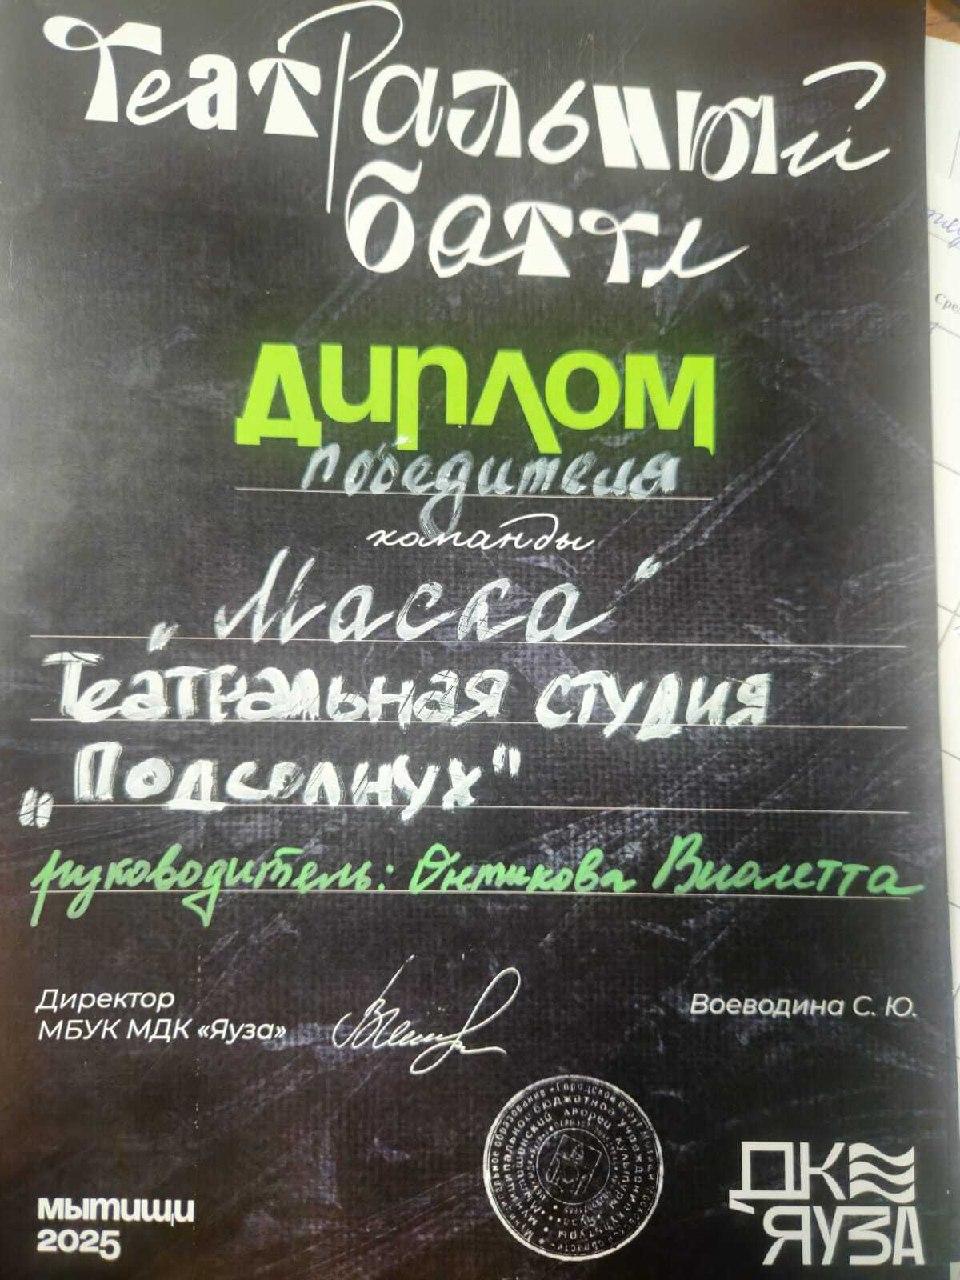 Театральный
баттл
ДИПЛОМ
победителя
команды
"Маска"
Театральная студия
"Подсолнух"
руководитель: Онтикова Виолетта
Директор
МБУК МДК «Яуза»
Воеводина С. Ю.
МЫТИЩИ
2025
ДК
ЯУЗА